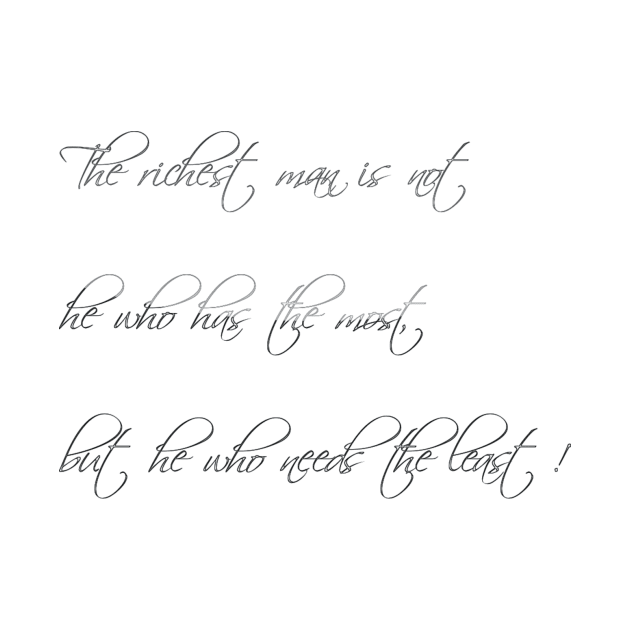 The richest man is not
he who has the most,
but he who needs the least !